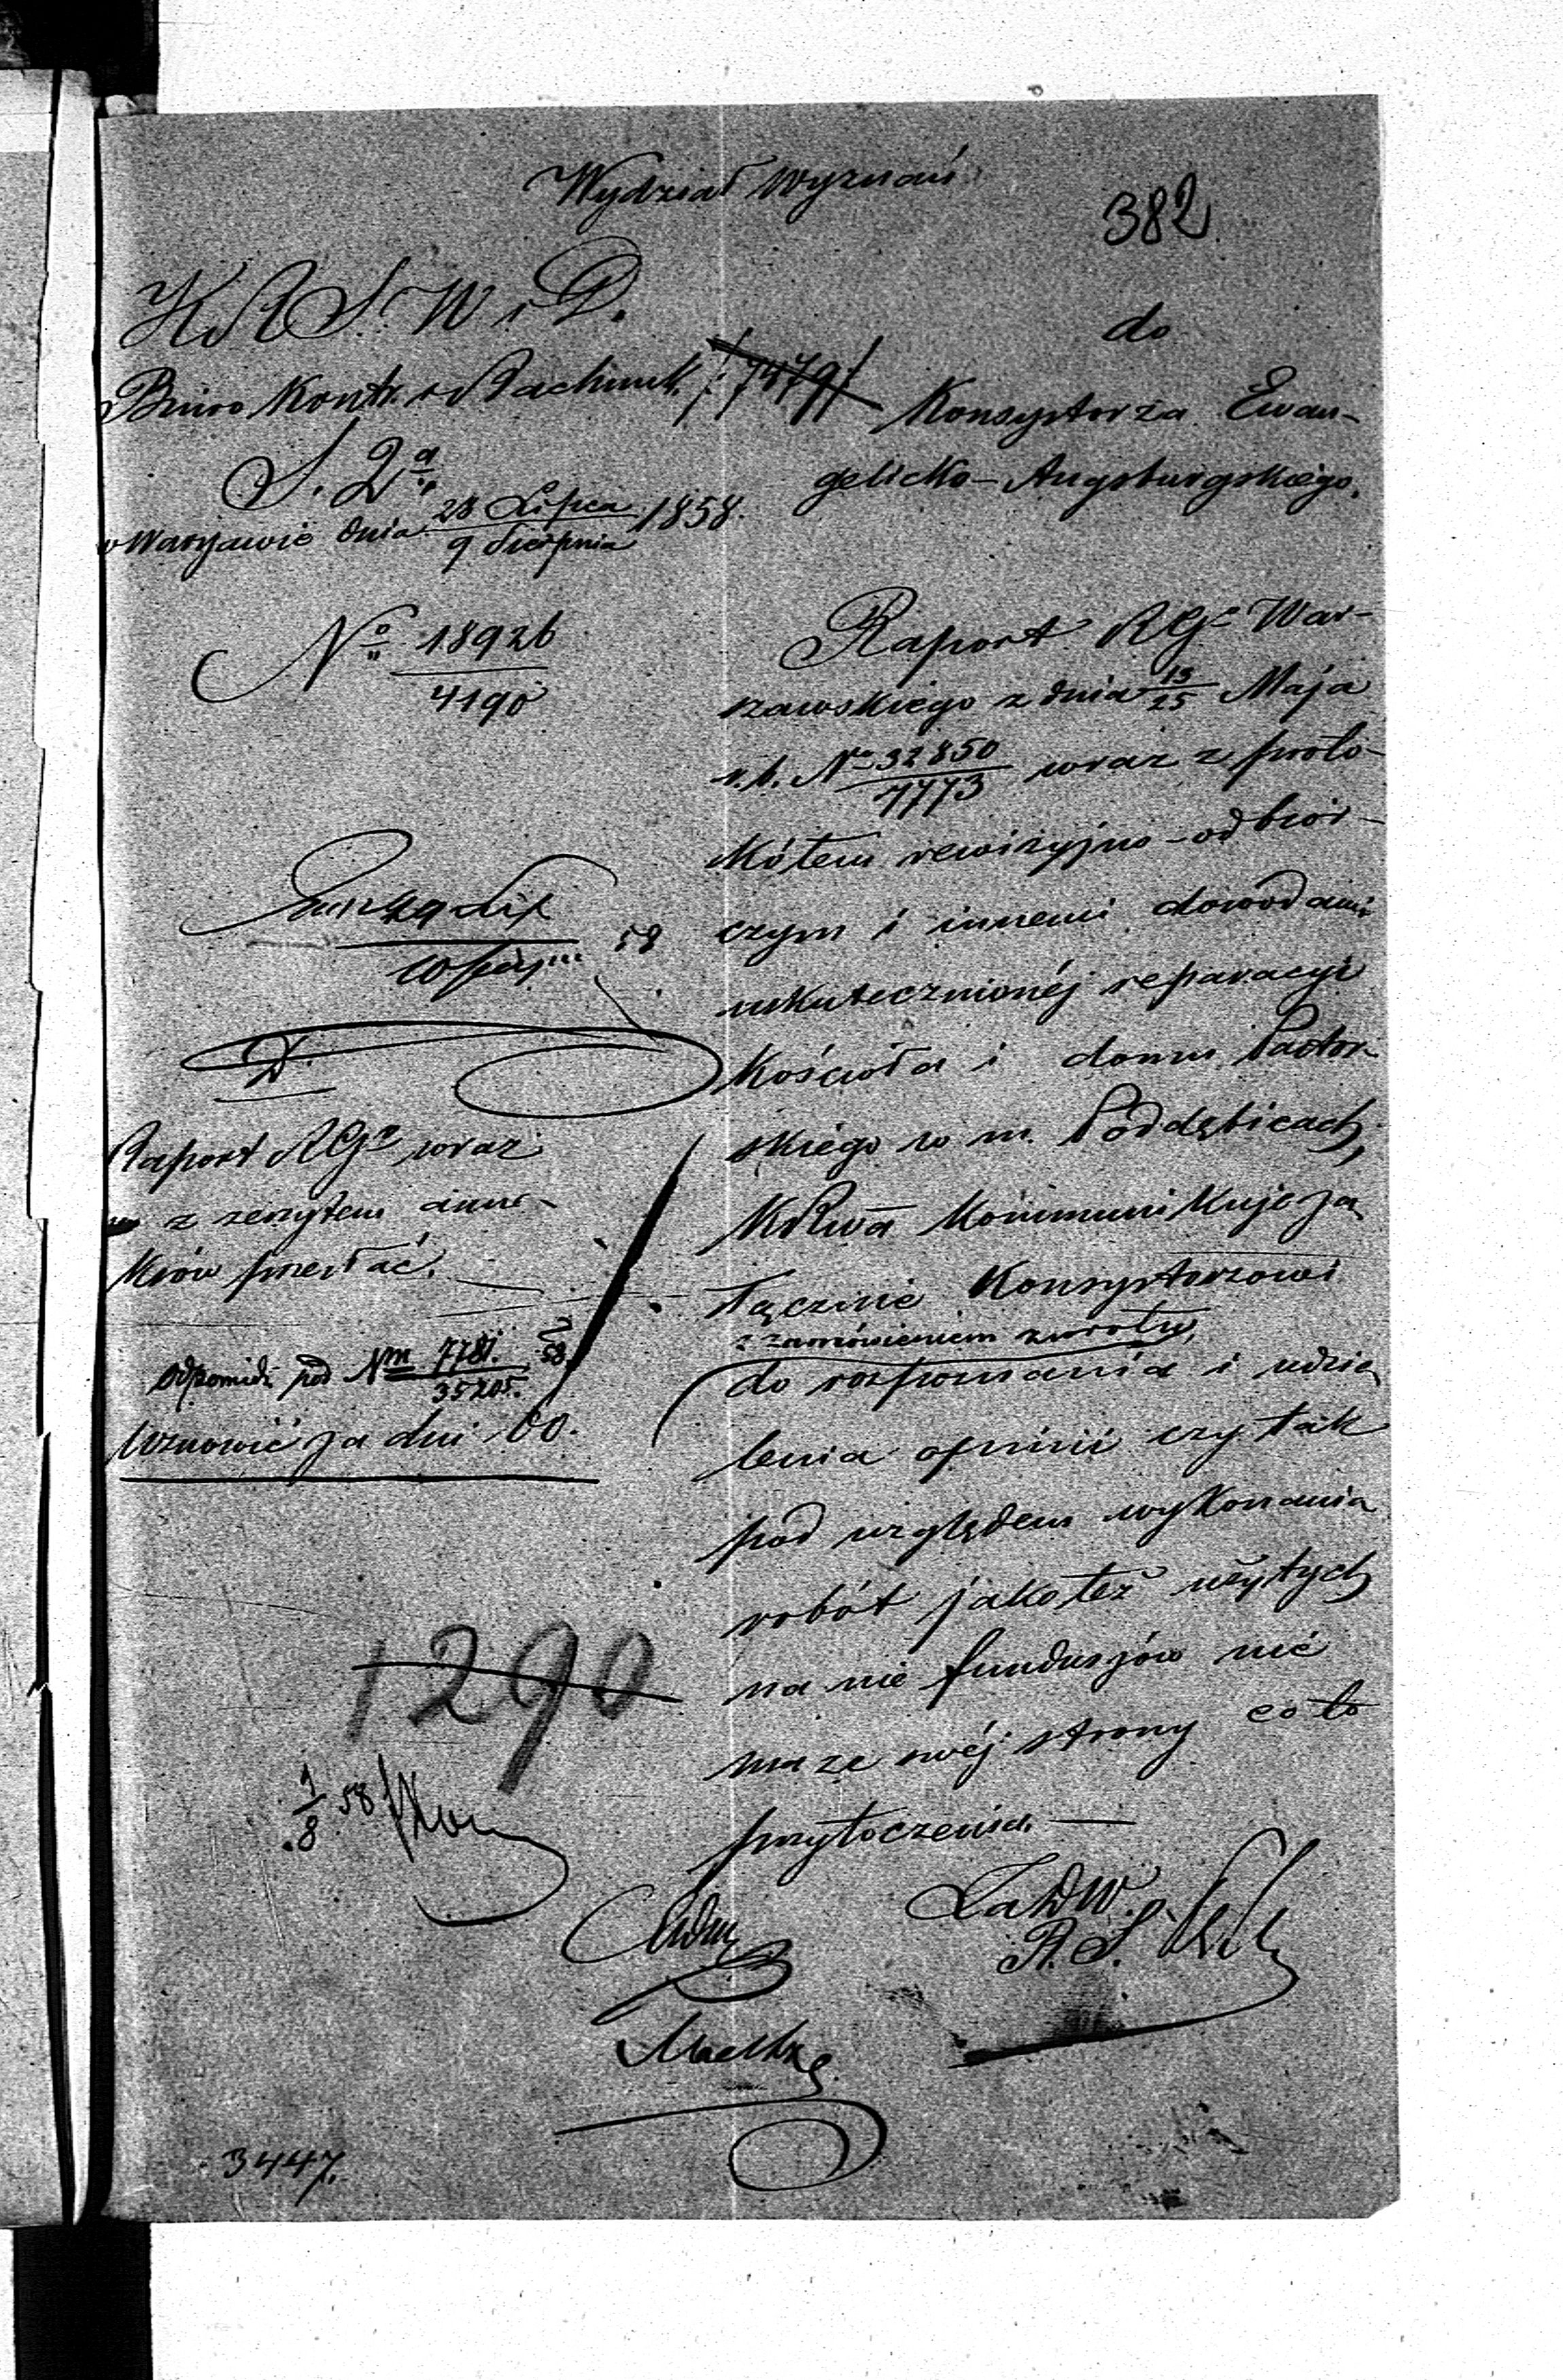 Wydział Wyznań
382
KRSW i D.
Biuro Kontr. i Rachunk. /:7479:/
S. 2a
w Warszawie dnia 28 Lipca / 9 Sierpnia 1858.
No 18926 / 4190
do
Konsystorza Ewan-
gelicko-Augsburgskiego.
Raport RGo War-
szawskiego z dnia 13/25 Maja
r. b. No 32850 / 7773 wraz z proto-
kółem rewizyjno-odbior-
czym i innemi dowodami
uskutecznionéj reparacyi
Kościoła i domu Pastor-
skiego w m. Poddębicach,
KRwa kommunikuje za
łącznie Konsystorzowi
z zamówieniem zwrotu,
do rozpoznania i udzie
lenia opinii czy tak
pod względem wykonania
robót jako też użytych
na nie funduszów nie
ma ze swéj strony co do
przytoczenia. —
58
Raport RGo wraz
z zeszytem anne-
ksów przesłać.
Odpowiedź pod Nm 7781. / 35205. 58.
Wznowić za dni 60.
1290
1/8 58
Za DW.
R. S.
3447.